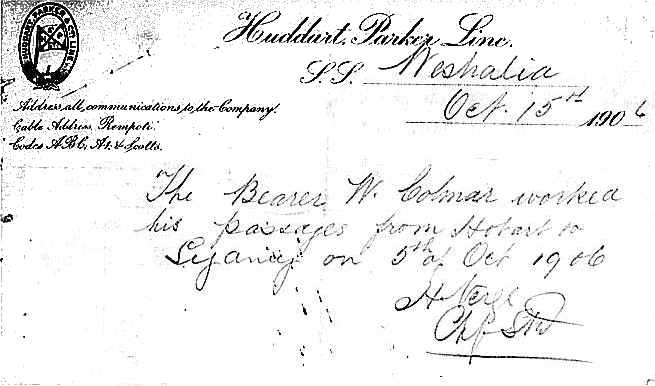 HUDDART PARKER & CO LINE
Huddart, Parker Line.
S.S. Weshalia
Oct. 15th 1906
Address all communications to the Company.
Cable Address, Rempoti.
Codes A.B.C, A1. & Scotts.
The Bearer W. Colmar worked
his passages from Hobart to
on 5th of Oct 1906
H
Chf Std